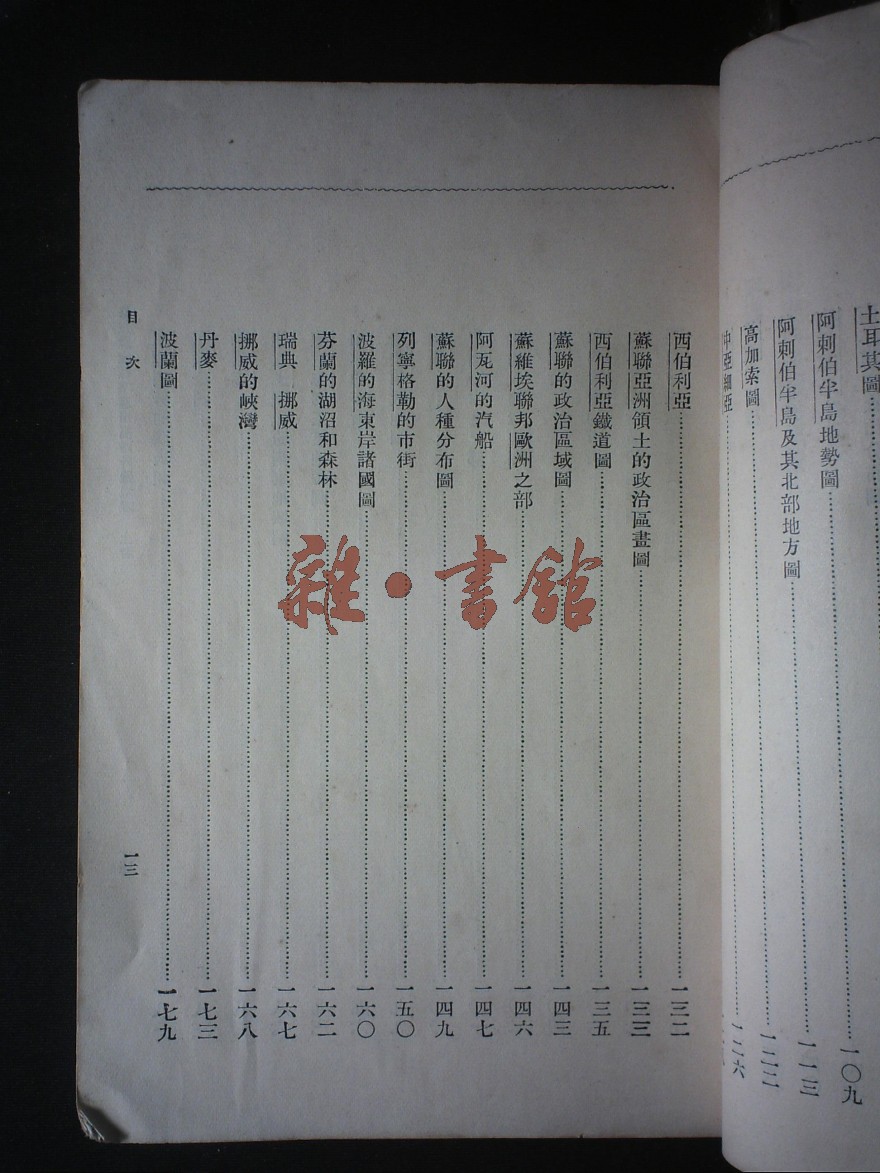 土耳其圖 一〇九
阿剌伯半島地勢圖 一一三
阿剌伯半島及其北部地方圖 一二二
高加索圖 一二六
中亞細亞
西伯利亞 一三二
蘇聯亞洲領土的政治區畫圖 一三三
西伯利亞鐵道圖 一三五
蘇聯的政治區域圖 一四三
蘇維埃聯邦歐洲之部 一四六
阿瓦河的汽船 一四七
蘇聯的人種分布圖 一四九
列寧格勒的市街 一五〇
波羅的海東岸諸國圖 一六〇
芬蘭的湖沼和森林 一六二
瑞典 挪威 一六七
挪威的峽灣 一六八
丹麥 一七三
波蘭圖 一七九
目次
一三
雜·書館